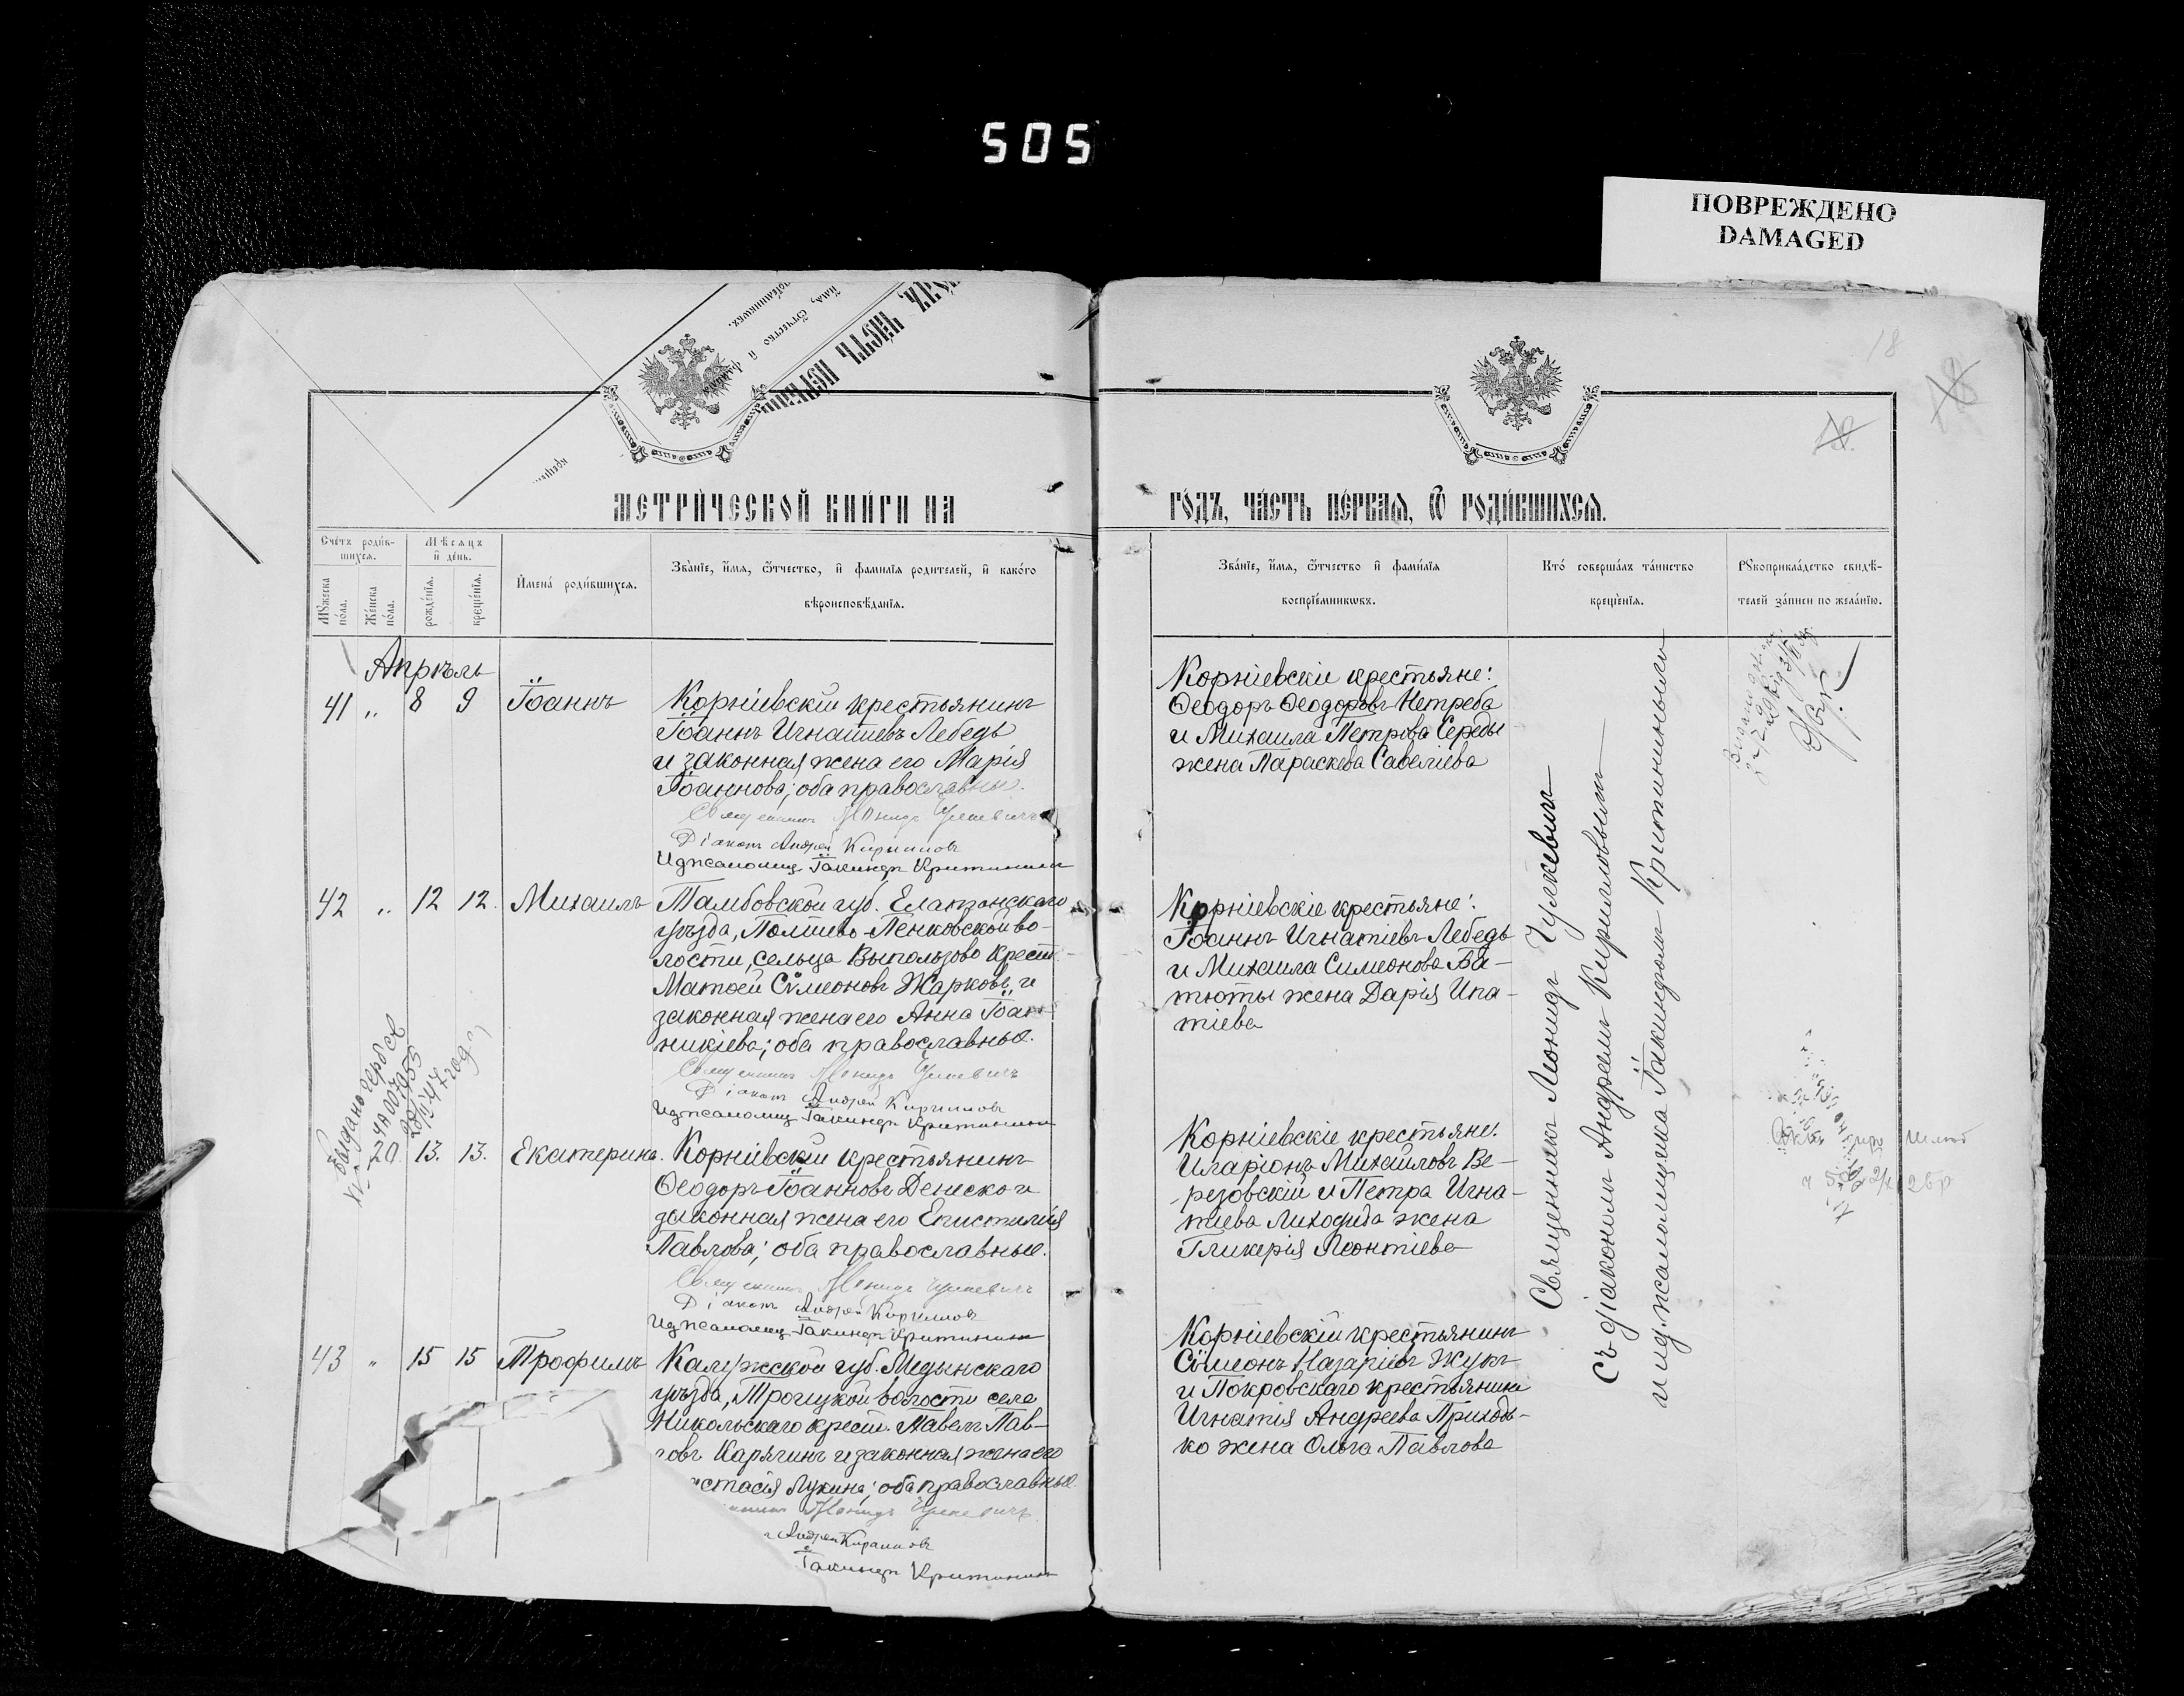 505
ПОВРЕЖДЕНО
DAMAGED
18
МЕТРИ́ЧЕСКОЙ КНИ́ГИ НА
ГО́ДЪ, ЧА́СТЬ ПЕ́РВАѦ, Ѿ РОДИ́ВШИХСѦ.
Сче́тъ роди́в-
шихсѧ.
Мꙋжеска по́ла.
Же́нска по́ла.
Мѣ́сѧцъ
и҆ де́нь.
рожде́нїѧ.
креще́нїѧ.
И҆мена̀ роди́вшихсѧ.
Зва́нїе, и҆́мѧ, ѻ҆́тчество, и҆ фами́лїѧ роди́телей, и҆ како́гѡ
вѣроисповѣ́данїѧ.
Зва́нїе, и҆́мѧ, ѻ҆́тчество и҆ фами́лїѧ
воспрїе́мникѡвъ.
Кто̀ соверша́лъ та́инство
креще́нїѧ.
Рꙋкоприкла́дство свидѣ́-
телей за́писи по жела́нїю.
Апрѣль
41 „ 8 9 Іоаннъ
Корніевскій крестьянинъ
Іоаннъ Игнатіевъ Лебедь
и законная жена его Марія
Іоаннова; оба православны.
Священникъ Леонидъ Чулкевичъ
Діаконъ Андрей Кирилловъ
И д псаломщ. Іакинфъ Критининъ
Корніевскіе крестьяне:
Ѳеодоръ Ѳеодоровъ Нетреба
и Михаила Петрова Середы
жена Параскева Савеліева
42 „ 12 12. Михаилъ
Тамбовской губ. Елатомскаго
уѣзда, Польцево-Пенковской во-
лости, сельца Выползово крест.
Матѳей Сѵмеоновъ Жарковъ, и
законная жена его Анна Іоан-
никіева; оба православные.
Священникъ Леонидъ Чулкевичъ
Діаконъ Андрей Кирилловъ
И д псаломщ Іакинфъ Критининъ
Корніевскіе крестьяне:
Іоаннъ Игнатіевъ Лебедь
и Михаила Симеонова Ба-
тюты жена Дарія Ипа-
тіева
Выдано
13. 13. Екатерина.
Корніевскій крестьянинъ
Ѳеодоръ Іоанновъ Денеско и
законная жена его Епистимія
Павлова; оба православные.
Священникъ Леонидъ Чулкевичъ
Діаконъ Андрей Кирилловъ
И д псаломщ Іакинфъ Критининъ
Корніевскіе крестьяне:
Иларіонъ Михайловъ Ве-
резовскій и Петра Игна-
тіева Лиходида жена
Гликерія Леонтіева
43 „ 15 15 Трофимъ
Калужской губ. Медынскаго
уѣзда, Троицкой волости села
Никольскаго крест. Павелъ Пав-
ловъ Карягинъ и законная жена его
стасія Лукина; оба православные.
Леонидъ Чулкевичъ
Андрей Кирилловъ
Іакинфъ Критининъ
Корніевскій крестьянинъ
Сѵмеонъ Назаріевъ Жукъ
и Покровскаго крестьянина
Игнатія Андреева Приходь-
ко жена Ольга Павлова
Священникъ Леонидъ Чулкевичъ
съ діакономъ Андреемъ Кирилловымъ
и и.д. псаломщика Іакинфомъ Критининымъ